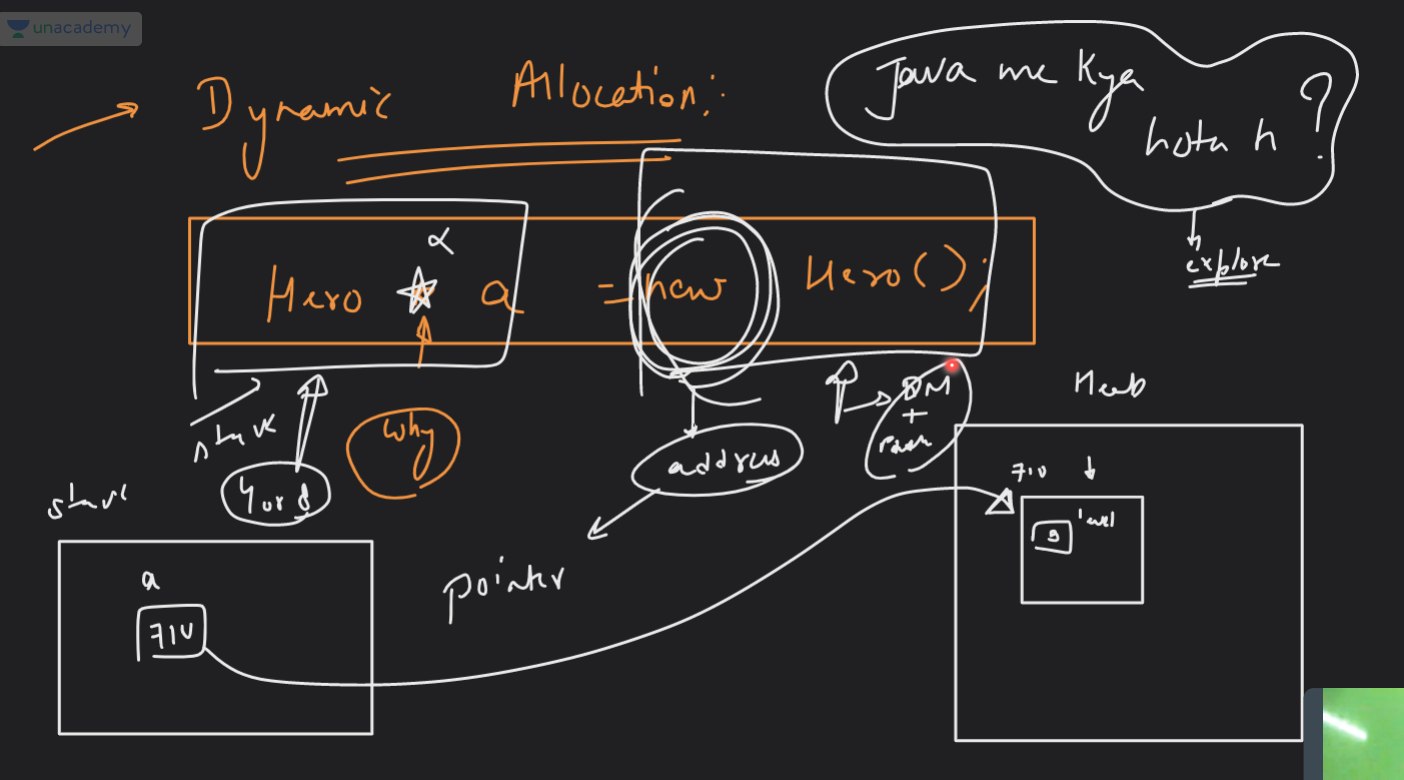 unacademy
Dynamic Allocation:
Java me Kya
hota h ?
explore
Hero * a = new Hero();
stack
4 or 8
Why
address
pointer
DM
+
Heap
710
level
stack
a
710